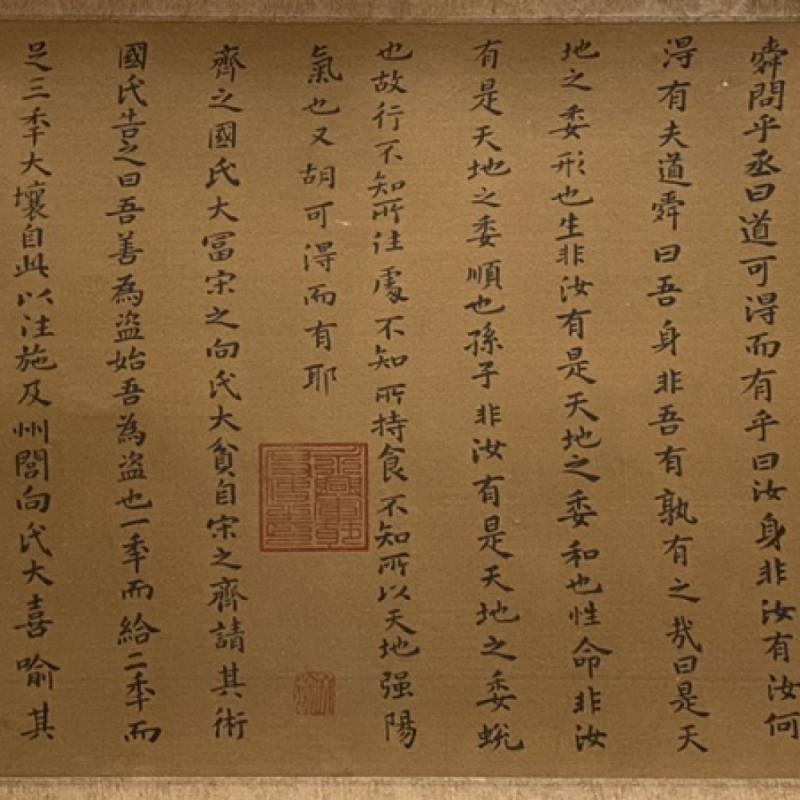 舜問乎丞曰道可得而有乎曰汝身非汝有汝何
淂有夫道舜曰吾身非吾有孰有之㦲曰是天
地之委形也生非汝有是天地之委和也性命非汝
有是天地之委順也孫子非汝有是天地之委蛻
也故行不知所往處不知所持食不知所以天地强陽
氣也又胡可淂而有耶
齊之國氏大冨宋之向氏大貧自宋之齊請其術
國氏告之曰吾善為盜始吾為盜也一年而給二年而
足三年大壤自此以往施及州閭向氏大喜喻其